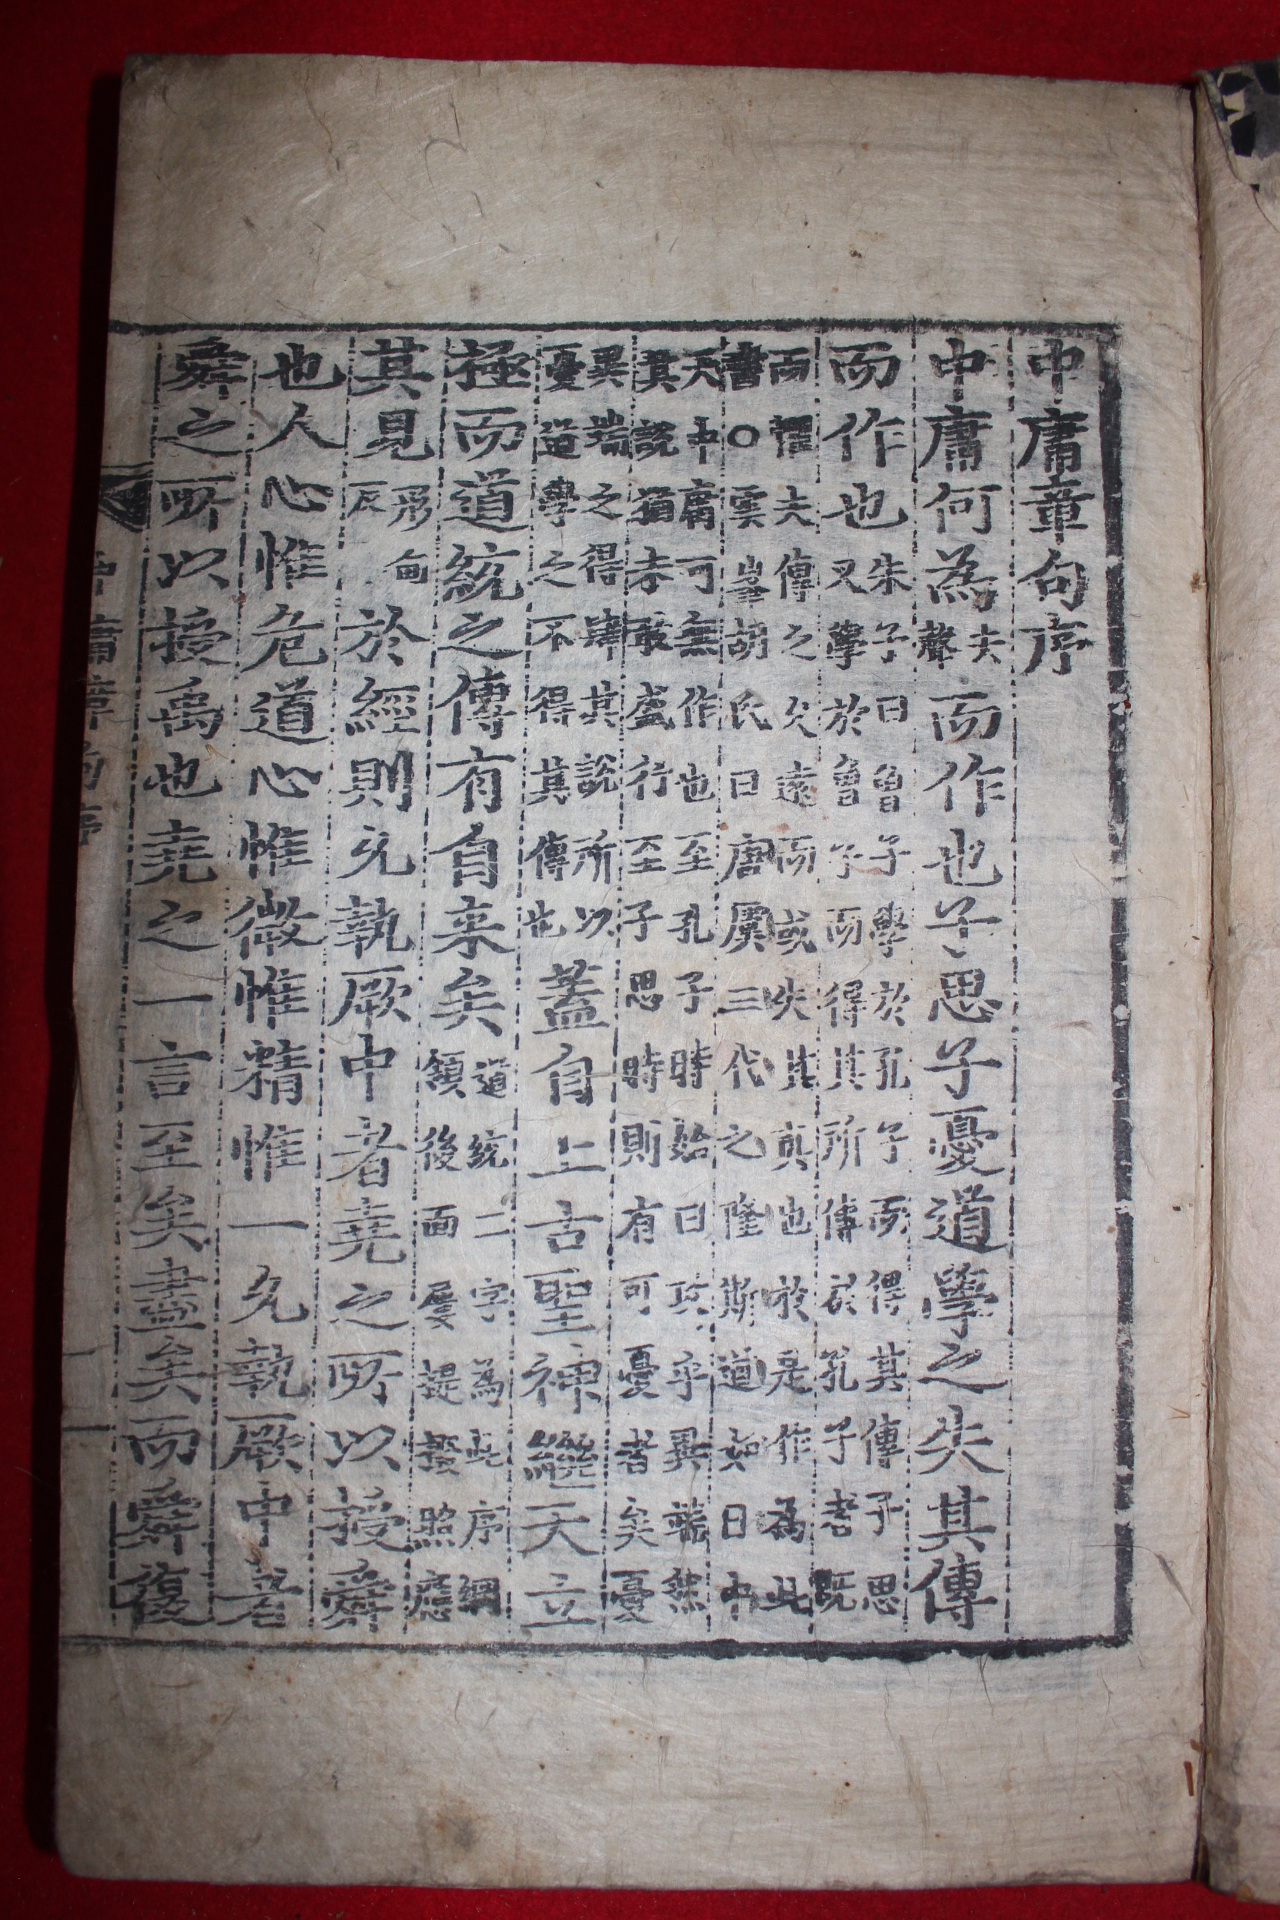 中庸章句序
中庸何為夫聲而作也子思子憂道學之失其傳
而作也朱子曰曾子學於孔子而得其傳子思
又學於曾子而得其所傳於孔子者既
而懼夫傳之久遠而或失其真也於是作為此
書○雲峯胡氏曰唐虞三代之隆斯道如日中
天中庸可無作也至孔子時始曰攻乎異端然
其說猶未敢盛行至子思時則有可憂者矣憂
異端之得肆其說所以
憂道學之不得其傳也蓋自上古聖神繼天立
極而道統之傳有自來矣道統二字為此序綱
領後面屢提掇照應
其見形甸反於經則允執厥中者堯之所以授舜
也人心惟危道心惟微惟精惟一允執厥中者
舜之所以授禹也堯之一言至矣盡矣而舜復
中庸章句序
一